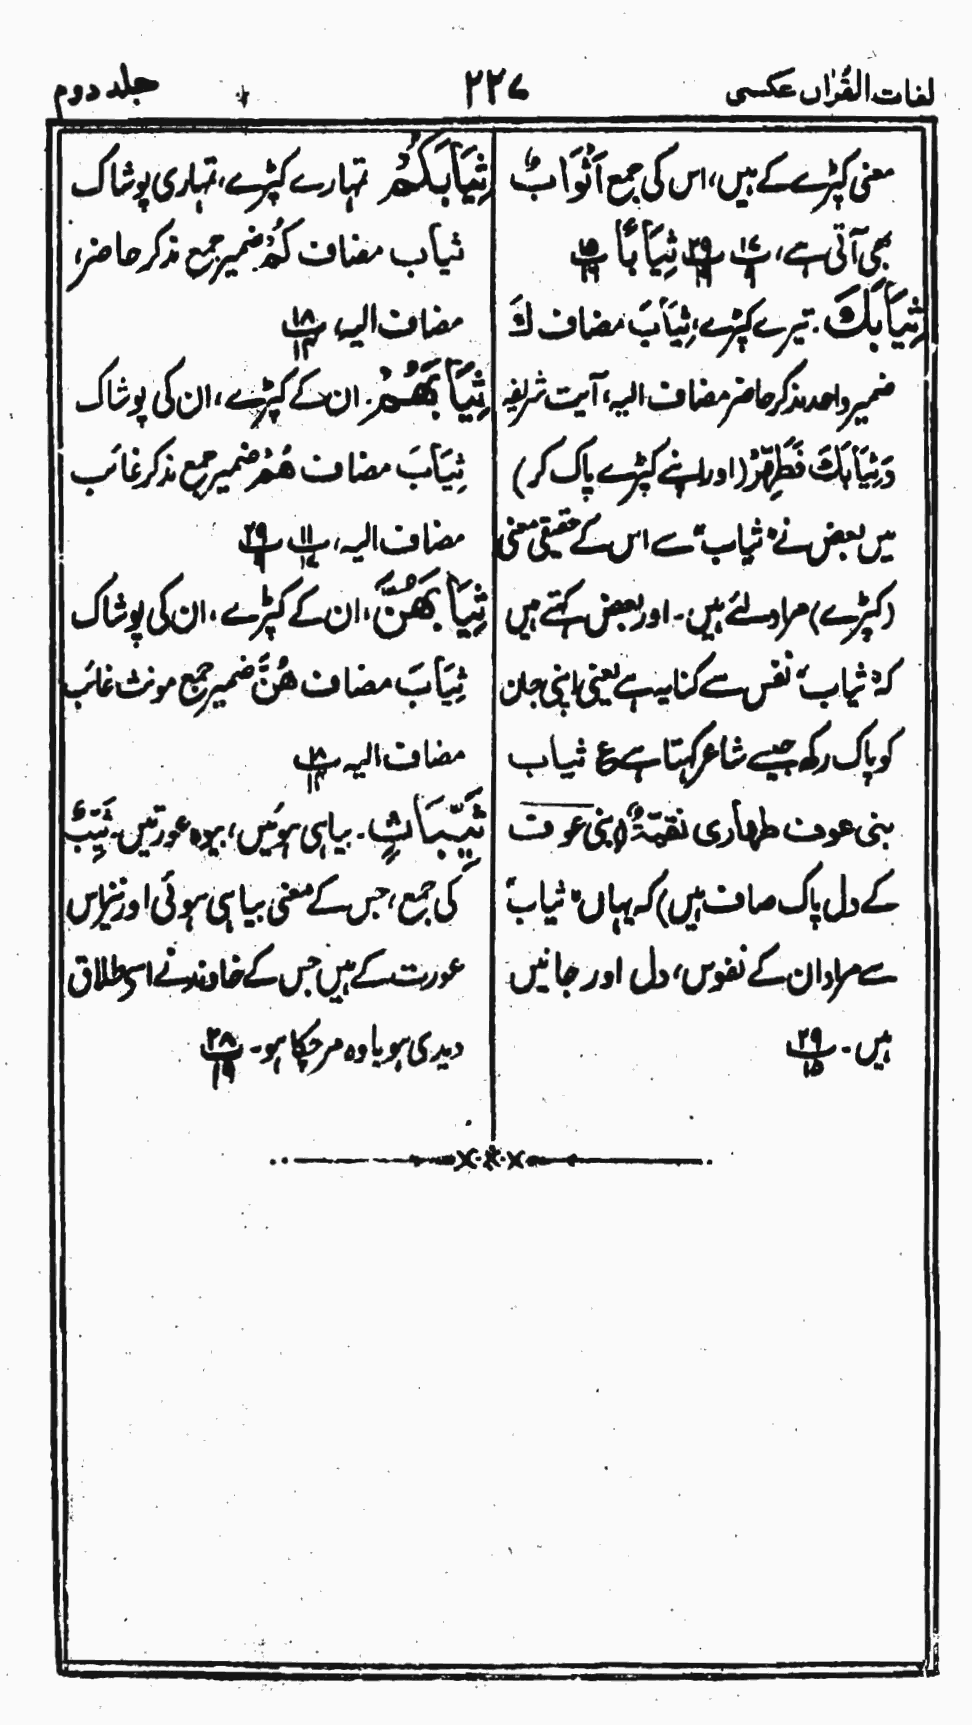 لغات القرآن عکسی ۲۲۷ جلد دوم
معنی کپڑے کے ہیں، اس کی جمع اَثْوَابٌ
بھی آتی ہے،
ثِیَابًا
ثِیَابَكَ۔ تیرے کپڑے، ثِیَابَ مضاف كَ
ضمیر واحد مذکر حاضر مضاف الیہ، آیت شریفہ
وَثِیَابَكَ فَطَهِّرْ (اور اپنے کپڑے پاک کر)
میں بعض نے "ثیاب" سے اس کے حقیقی معنی
(کپڑے) مراد لئے ہیں۔ اور بعض کہتے ہیں
کہ "ثیاب" نفس سے کنایہ ہے یعنی اپنی جان
کو پاک رکھ جیسے شاعر کہتا ہے ع ثیاب
بنی عوف طہاری نقیّۃٌ (بنی عوف
کے دل پاک صاف ہیں) کہ یہاں "ثیاب"
سے مراد ان کے نفوس، دل اور جانیں
ہیں۔ ۲۹/۱۵
ثِیَابَكُمْ تمہارے کپڑے، تمہاری پوشاک
ثیاب مضاف كُمْ ضمیر جمع مذکر حاضر،
مضاف الیہ،
ثِیَابَهُمْ۔ ان کے کپڑے، ان کی پوشاک
ثِیَابَ مضاف هُمْ ضمیر جمع مذکر غائب
مضاف الیہ،
ثِیَابَهُنَّ، ان کے کپڑے، ان کی پوشاک
ثِیَابَ مضاف هُنَّ ضمیر جمع مونث غائب
مضاف الیہ
ثَیِّبَاتٍ۔ بیاہی ہوئیں، بیوہ عورتیں۔ ثَیِّبٌ
کی جمع، جس کے معنی بیاہی ہوئی اور نیز اس
عورت کے ہیں جس کے خاوند نے اسے طلاق
دیدی ہو یا وہ مر چکا ہو۔ ۲۸/۱۹